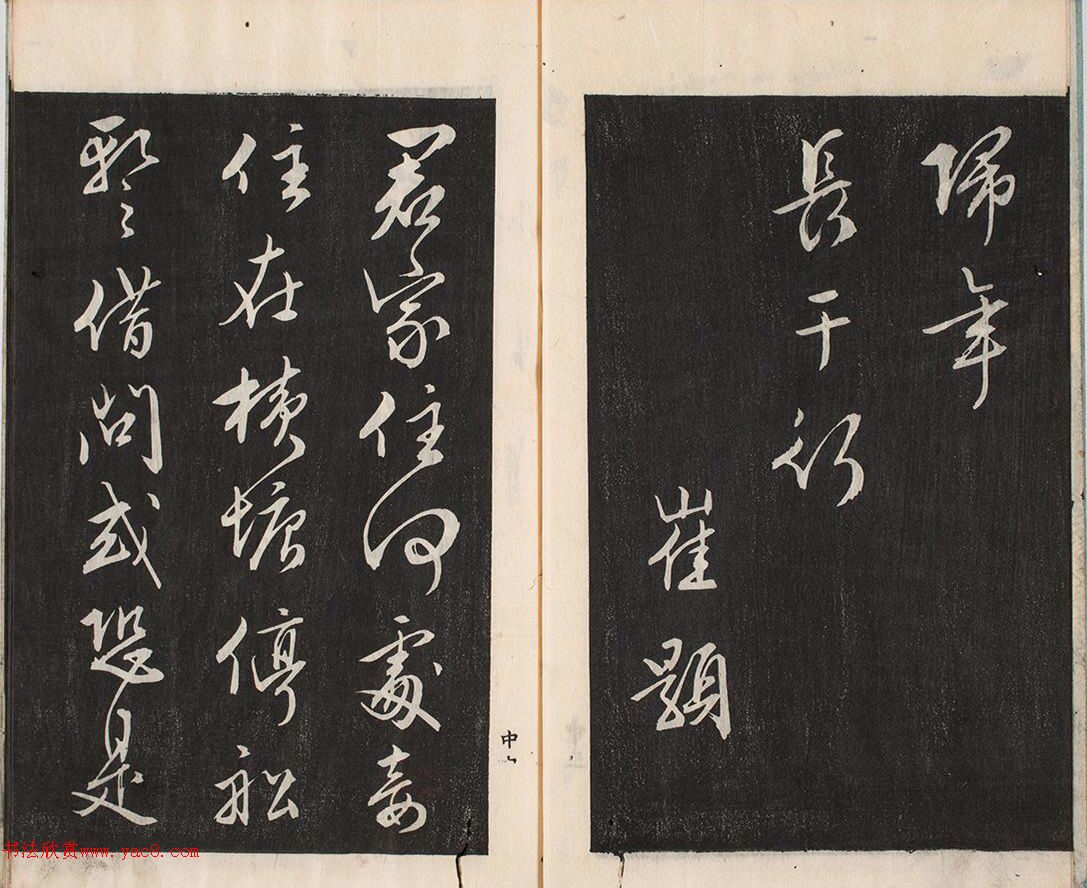 歸年
長干行
崔顥
君家住何處妾
住在橫塘停舩
暫借問或恐是
中
书法欣赏www.yac8.com